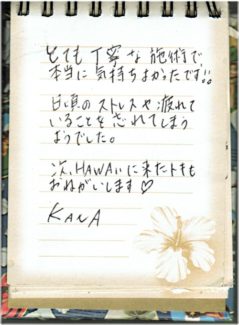 とても丁寧な施術で
本当に気持ちよかったです!!
日頃のストレスや疲れて
いることを忘れてしまう
ようでした。
次、HAWAiiに来たトキも
おねがいします♡
KANA